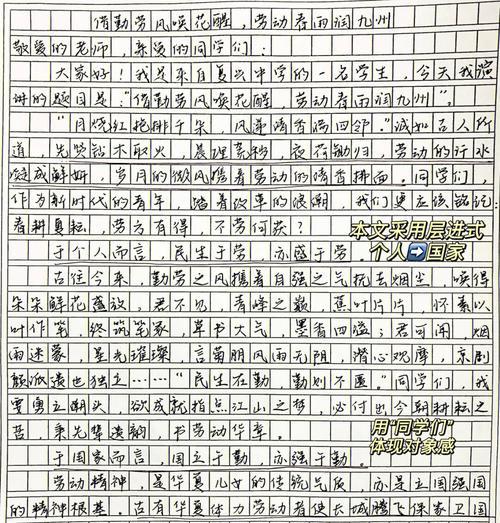 借勤劳风唤花醒，劳动春雨润九州
敬爱的老师，亲爱的同学们：
大家好！我是来自复兴中学的一名学生，今天我演
讲的题目是：“借勤劳风唤花醒，劳动春雨润九州”。
“日烧红艳排千朵，风递清香满四邻。”诚如古人所
道，先贤钻木取火，晨理荒秽，夜荷锄归，劳动的汗水
凝成鲜妍，岁月的微风携着劳动的清香拂面。同学们，
作为新时代的青年，踏着改革的浪潮，我们更应该铭记：
春耕夏耘，劳方有得，不劳何获？
本文采用层进式
个人➡国家
于个人而言，民生于劳，亦盛于劳。
古往今来，勤劳之风携着自强之气抚去烟尘，唤得
朵朵鲜花盛放。君不见，青峰之巅，蕉叶片片，怀素以
叶作笔，终筑笔冢，草书大气，墨香四溢；君可闻，烟
雨迷蒙，星光璀璨，言菊朋风雨无阴，潜心观摩，京剧
颜派遗世独立……“民生在勤，勤则不匮。”同学们，我
要勇立潮头，欲成就指点江山之梦，必付出今朝耕耘之
苦，秉先辈遗韵，书劳动华章。
用“同学们”
体现对象感
于国家而言，国立于勤，亦强于勤。
劳动精神，是华夏儿女的传统气质，亦是立国强国
的精神根基。古有华夏体力劳动者使长城腾飞保家卫国